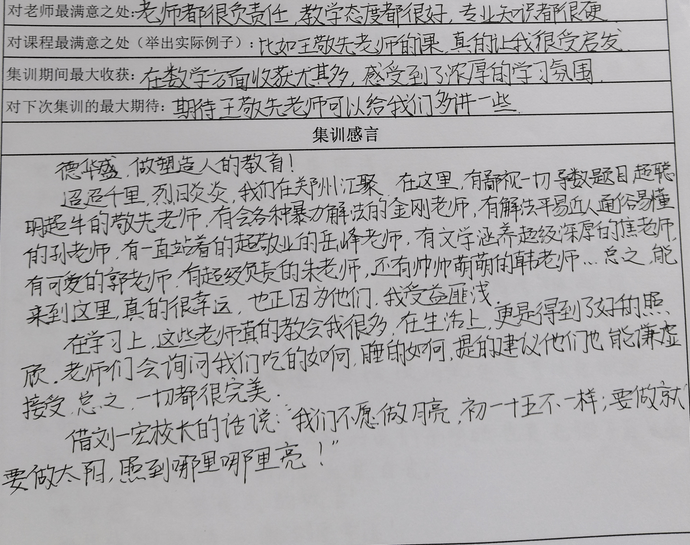 对老师最满意之处:老师都很负责任,教学态度都很好,专业知识都很硬
对课程最满意之处(举出实际例子):比如王敬先老师的课,真的让我很受启发.
集训期间最大收获:在数学方面收获尤其多,感受到了浓厚的学习氛围.
对下次集训的最大期待:期待王敬先老师可以给我们多讲一些.
集训感言
德华盛,做塑造人的教育!
迢迢千里,烈日炎炎,我们在郑州汇聚.在这里,有鄙视一切导数题目超聪
明超牛的敬先老师,有会各种暴力解法的金刚老师,有解法平易近人通俗易懂
的孙老师,有一直站着的超敬业的岳峰老师,有文学涵养超级深厚的焦老师,
有可爱的郭老师,有超级负责的朱老师,还有帅帅萌萌的韩老师…总之,能
来到这里,真的很幸运,也正因为他们,我受益匪浅.
在学习上,这些老师真的教会我很多,在生活上,更是得到了好的照
顾,老师们会询问我们吃的如何,睡的如何,提的建议他们也能谦虚
接受,总之,一切都很完美.
借刘一宏校长的话说:"我们不愿做月亮,初一十五不一样;要做就
要做太阳,照到哪里哪里亮!"